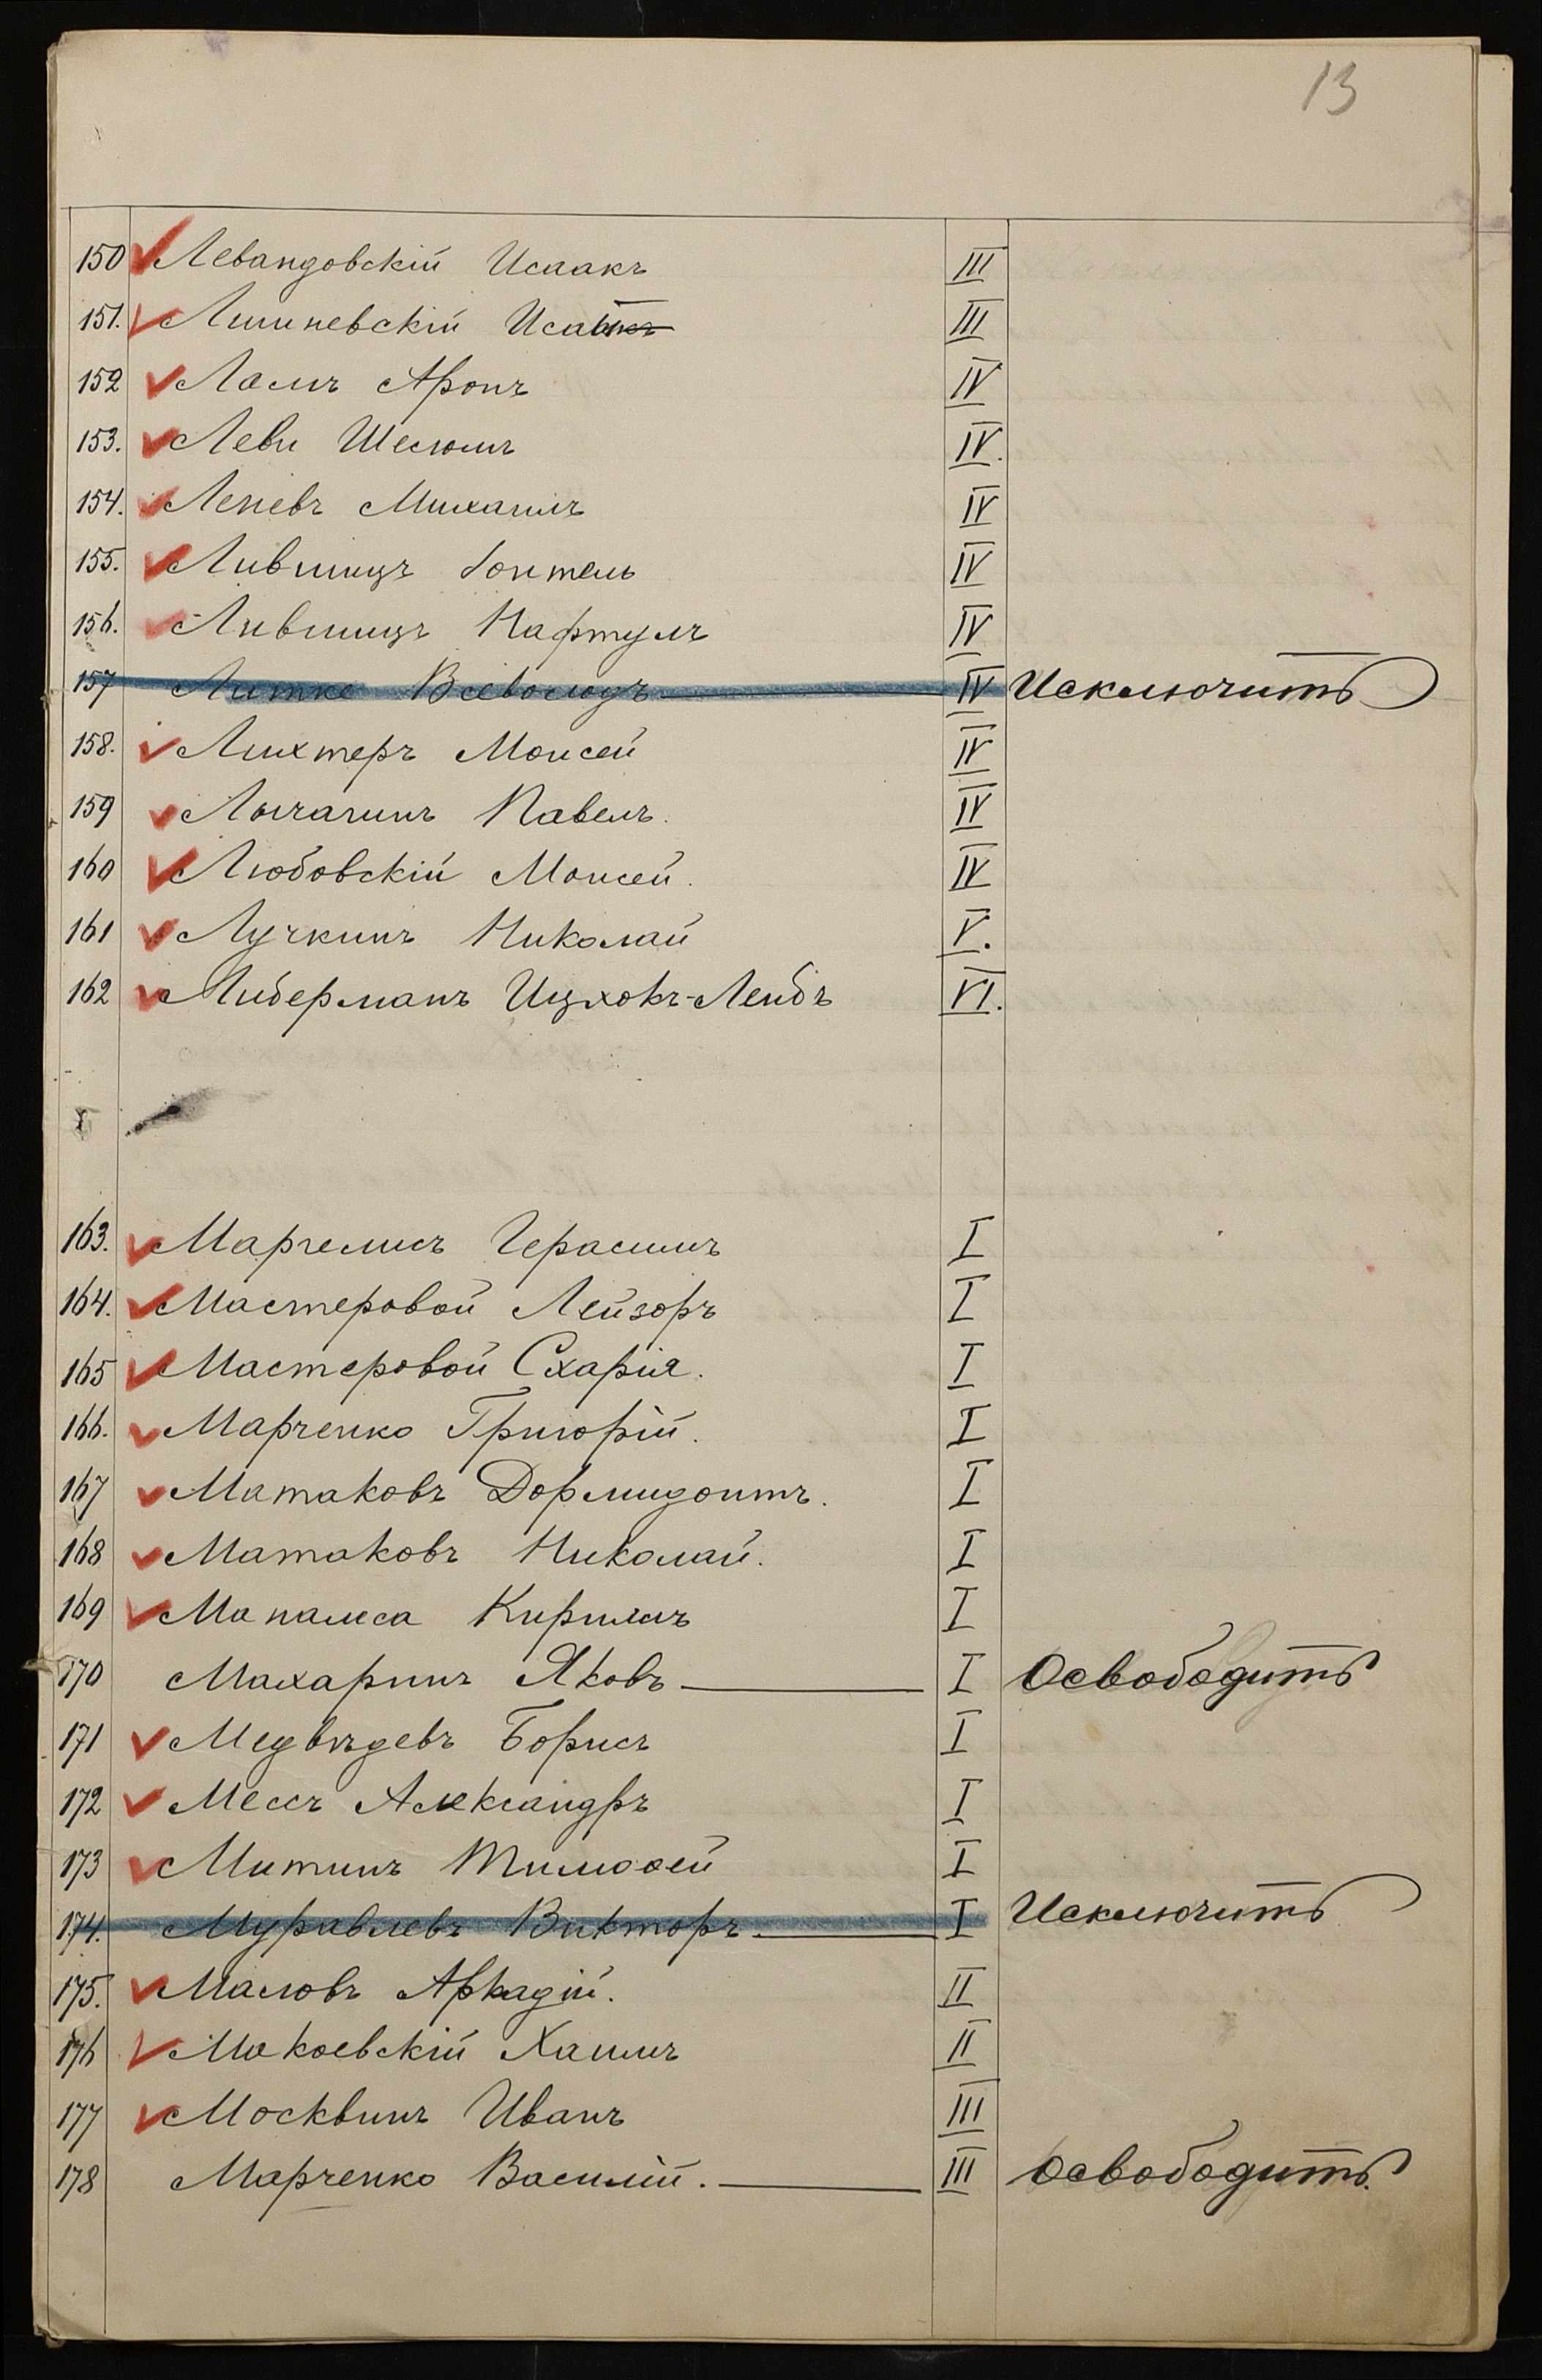 13
150 Левандовскій Исаакъ III
151. Лишневскій III
152 Ламъ Аронъ IV
153. Леви IV.
154. Михаилъ IV
155. Лившицъ IV
156. Лившицъ Нафтулъ IV
157 Литке Всеволодъ IV Исключить
158. Лихтеръ Моисей IV
159 Лычагинъ Павелъ. IV
160 Любовскій Моисей. IV
161 Лучкинъ Николай V.
162 Либерманъ Ицхокъ-Лейбъ VI.
163. Маргелисъ Герасимъ I
164. Мастеровой Лейзоръ I
165 Мастеровой Схарія. I
166. Марченко Григорій. I
167 Матаковъ Дормидонтъ. I
168 Матаковъ Николай. I
169 Кириллъ I
170 Махаринъ Яковъ I Освободить
171 Медвѣдевъ Борисъ I
172 Мессъ Александръ I
173 Митинъ Тимофей I
174. Муравлевъ Викторъ I Исключить
175. Маловъ Аркадій. II
176 Макоевскій Хаимъ II
177 Москвинъ Иванъ III
178 Марченко Василій. III Освободить.